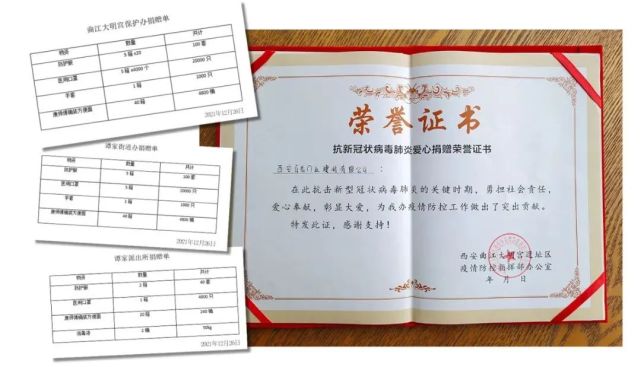 曲江大明宫保护办捐赠单
物资 数量 共计
防护服 5箱 x20 100套
医用口罩 5箱 x4000个 20000只
手套 1箱 1000只
康师傅桶装方便面 40箱
2021年12月26日
谭家街道办捐赠单
物资 数量 共计
防护服 5箱 100套
医用口罩 5箱
手套 1箱
康师傅桶装方便面
2021年12月26日
谭家派出所捐赠单
物资 数量 共计
防护服 2箱 40套
医用口罩 1箱 4000只
康师傅桶装方便面 20箱 240桶
消毒液 2桶 50kg
2021年12月26日
荣誉证书
抗新冠状病毒肺炎爱心捐赠荣誉证书
在此抗击新型冠状病毒肺炎的关键时期，勇担社会责任，
爱心奉献，彰显大爱，为我办疫情防控工作做出了突出贡献。
特发此证，感谢支持！
西安曲江大明宫遗址区
疫情防控指挥部办公室
年 月 日